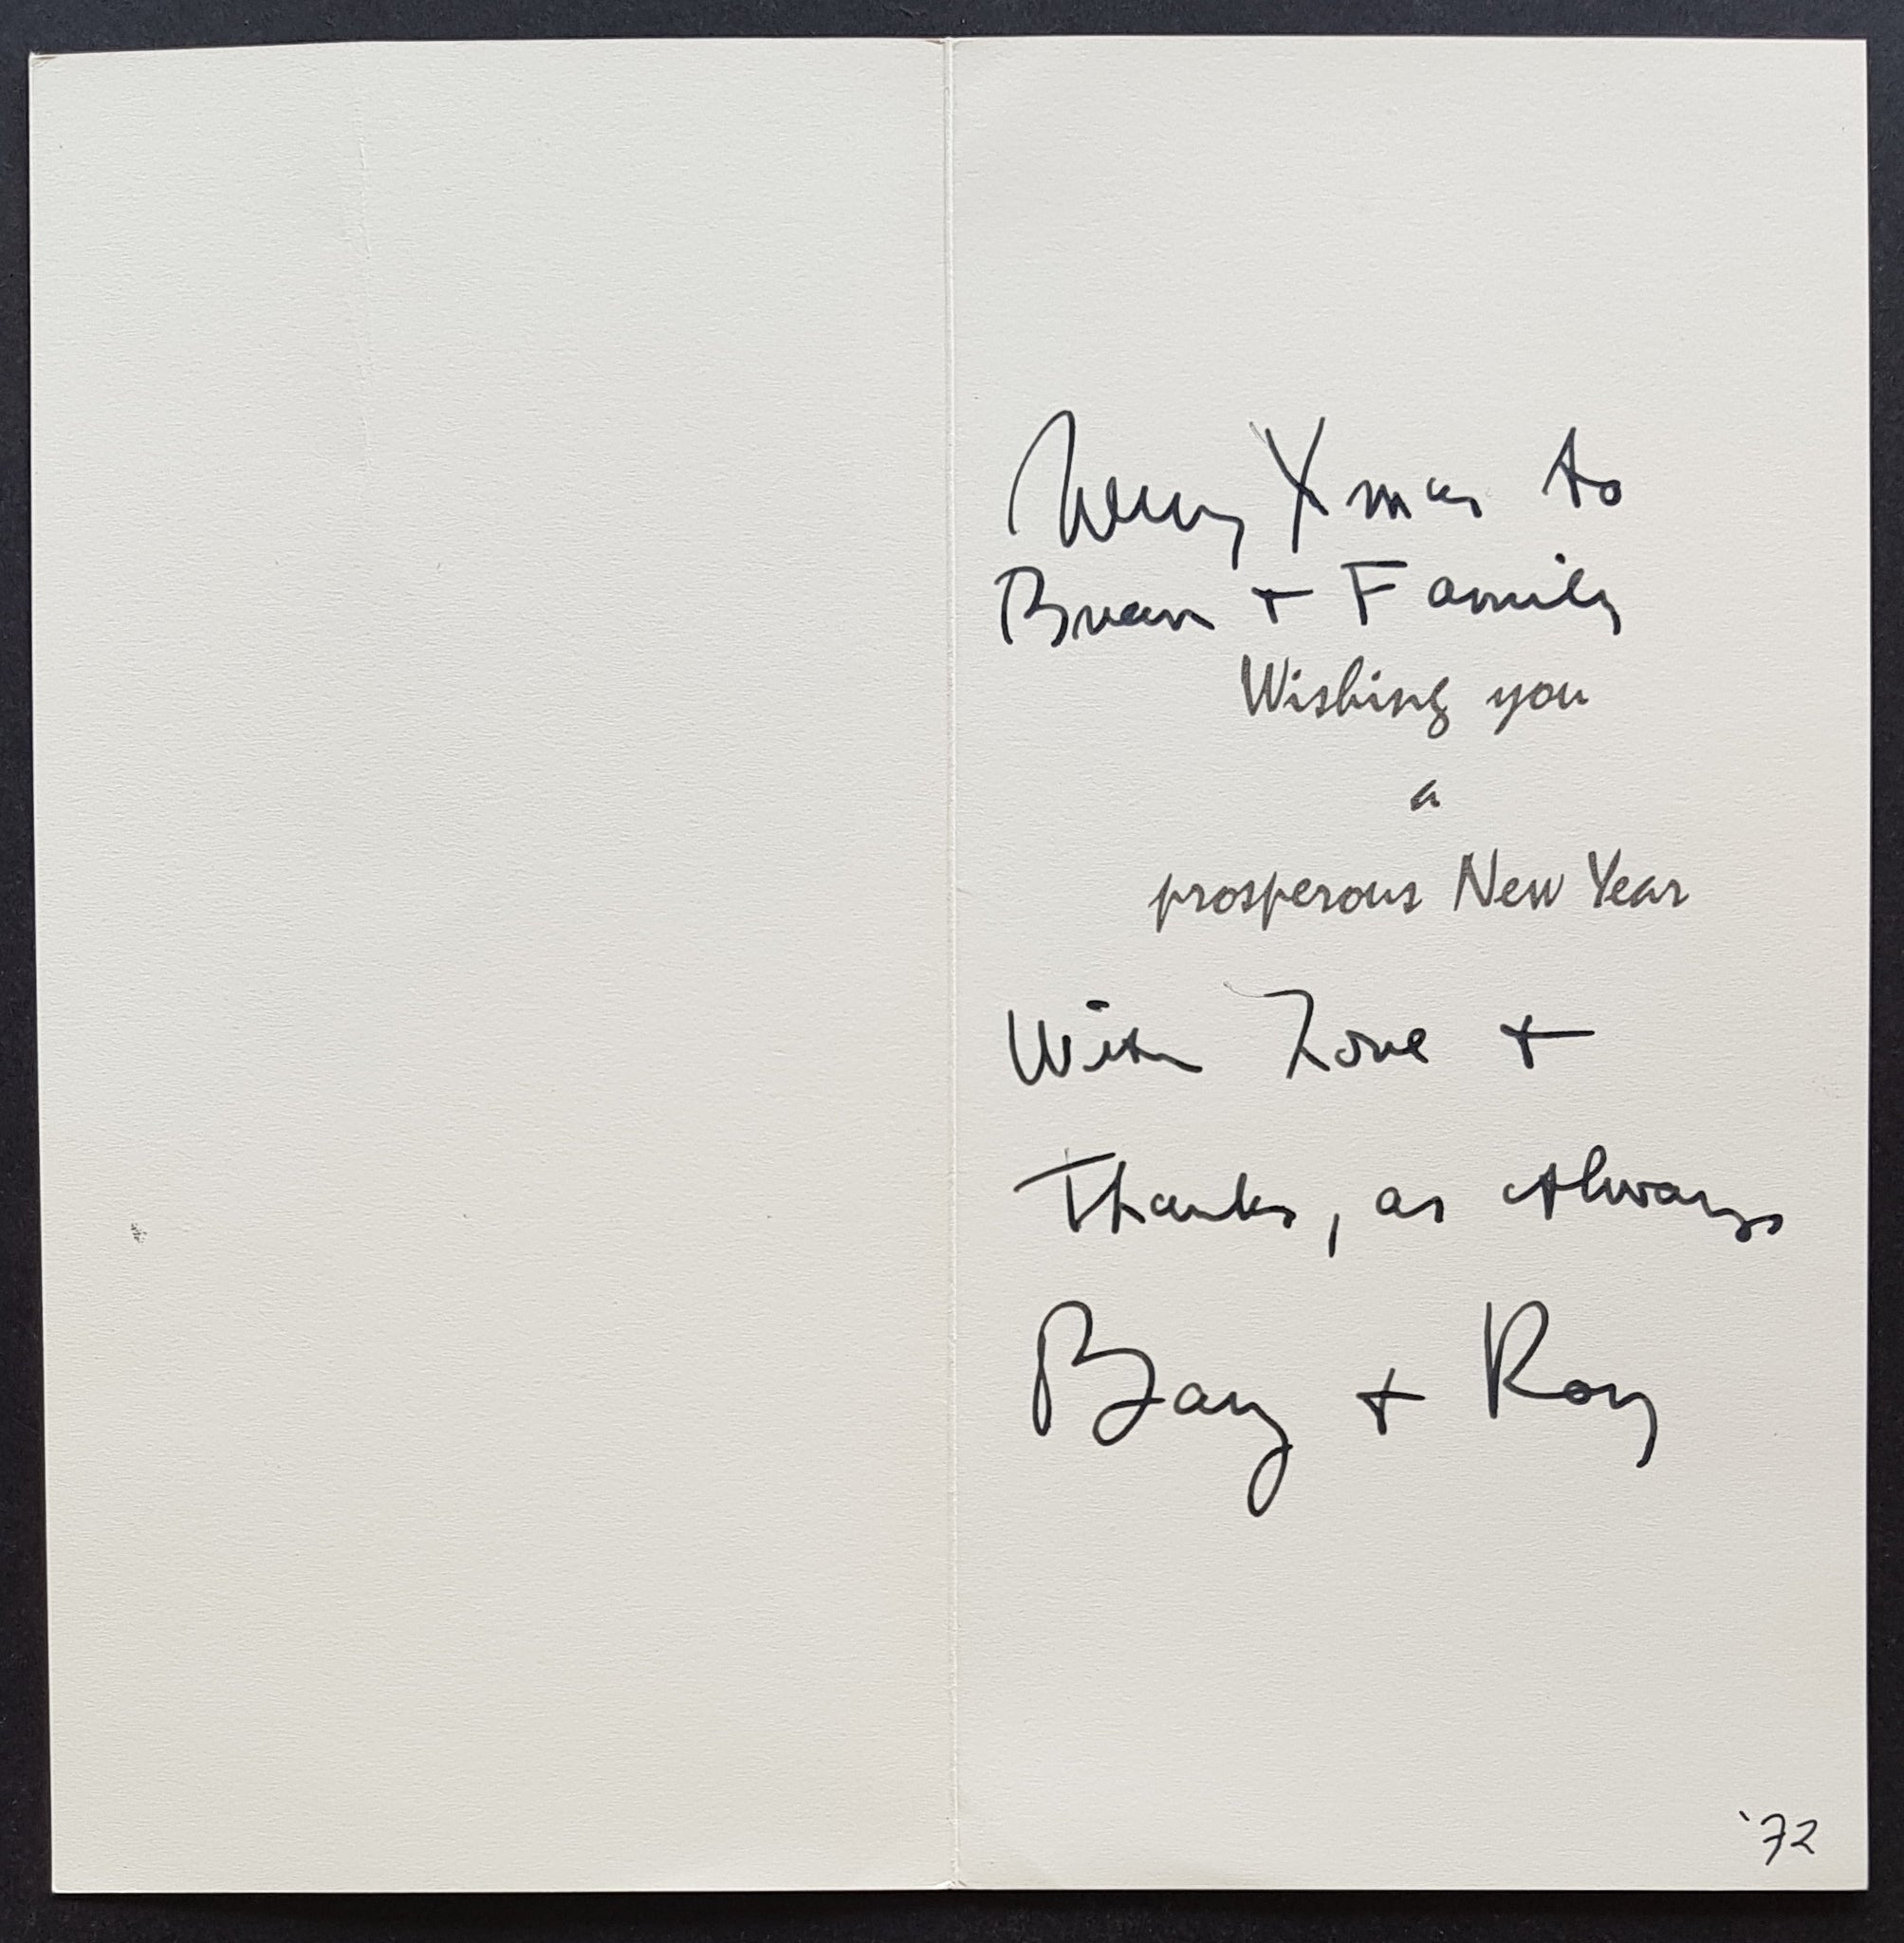 Merry Xmas to
Brian + Family
Wishing you
a
prosperous New Year
With Love +
Thanks, as Always
+ Roy
'72